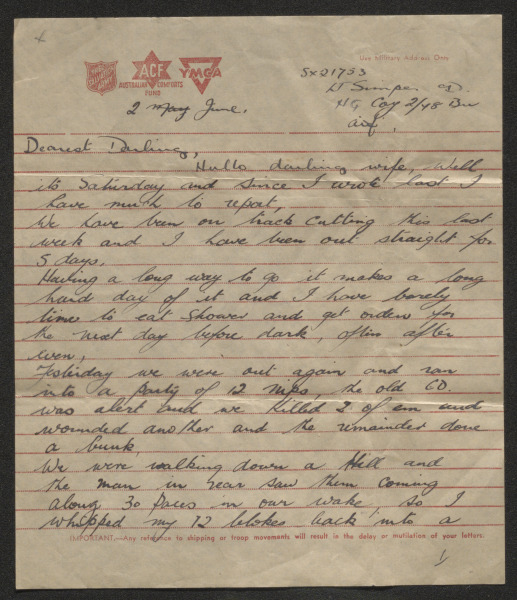 x
THE SALVATION ARMY
ACF
AUSTRALIAN COMFORTS
FUND
YMCA
Use Military Address Only
SX21753
Lt Simper
HQ Coy 2/48 Bn
aif.
2 May June.
Dearest Darling,
Hullo darling wife, Well
its Saturday and since I wrote last I
have much to report,
We have been on track cutting this last
week and I have been out straight for
5 days.
Having a long way to go it makes a long
hard day of it and I have barely
time to eat shower and get orders for
the next day before dark, often after
even,
Yesterday we were out again and ran
into a party of 12 nips, the old CO.
was alert and we killed 2 of em and
wounded another and the remainder done
a bunk,
We were walking down a Hill and
the man in rear saw them coming
along 30 paces in our wake, so I
whipped my 12 blokes back into a
IMPORTANT.—Any reference to shipping or troop movements will result in the delay or mutilation of your letters.